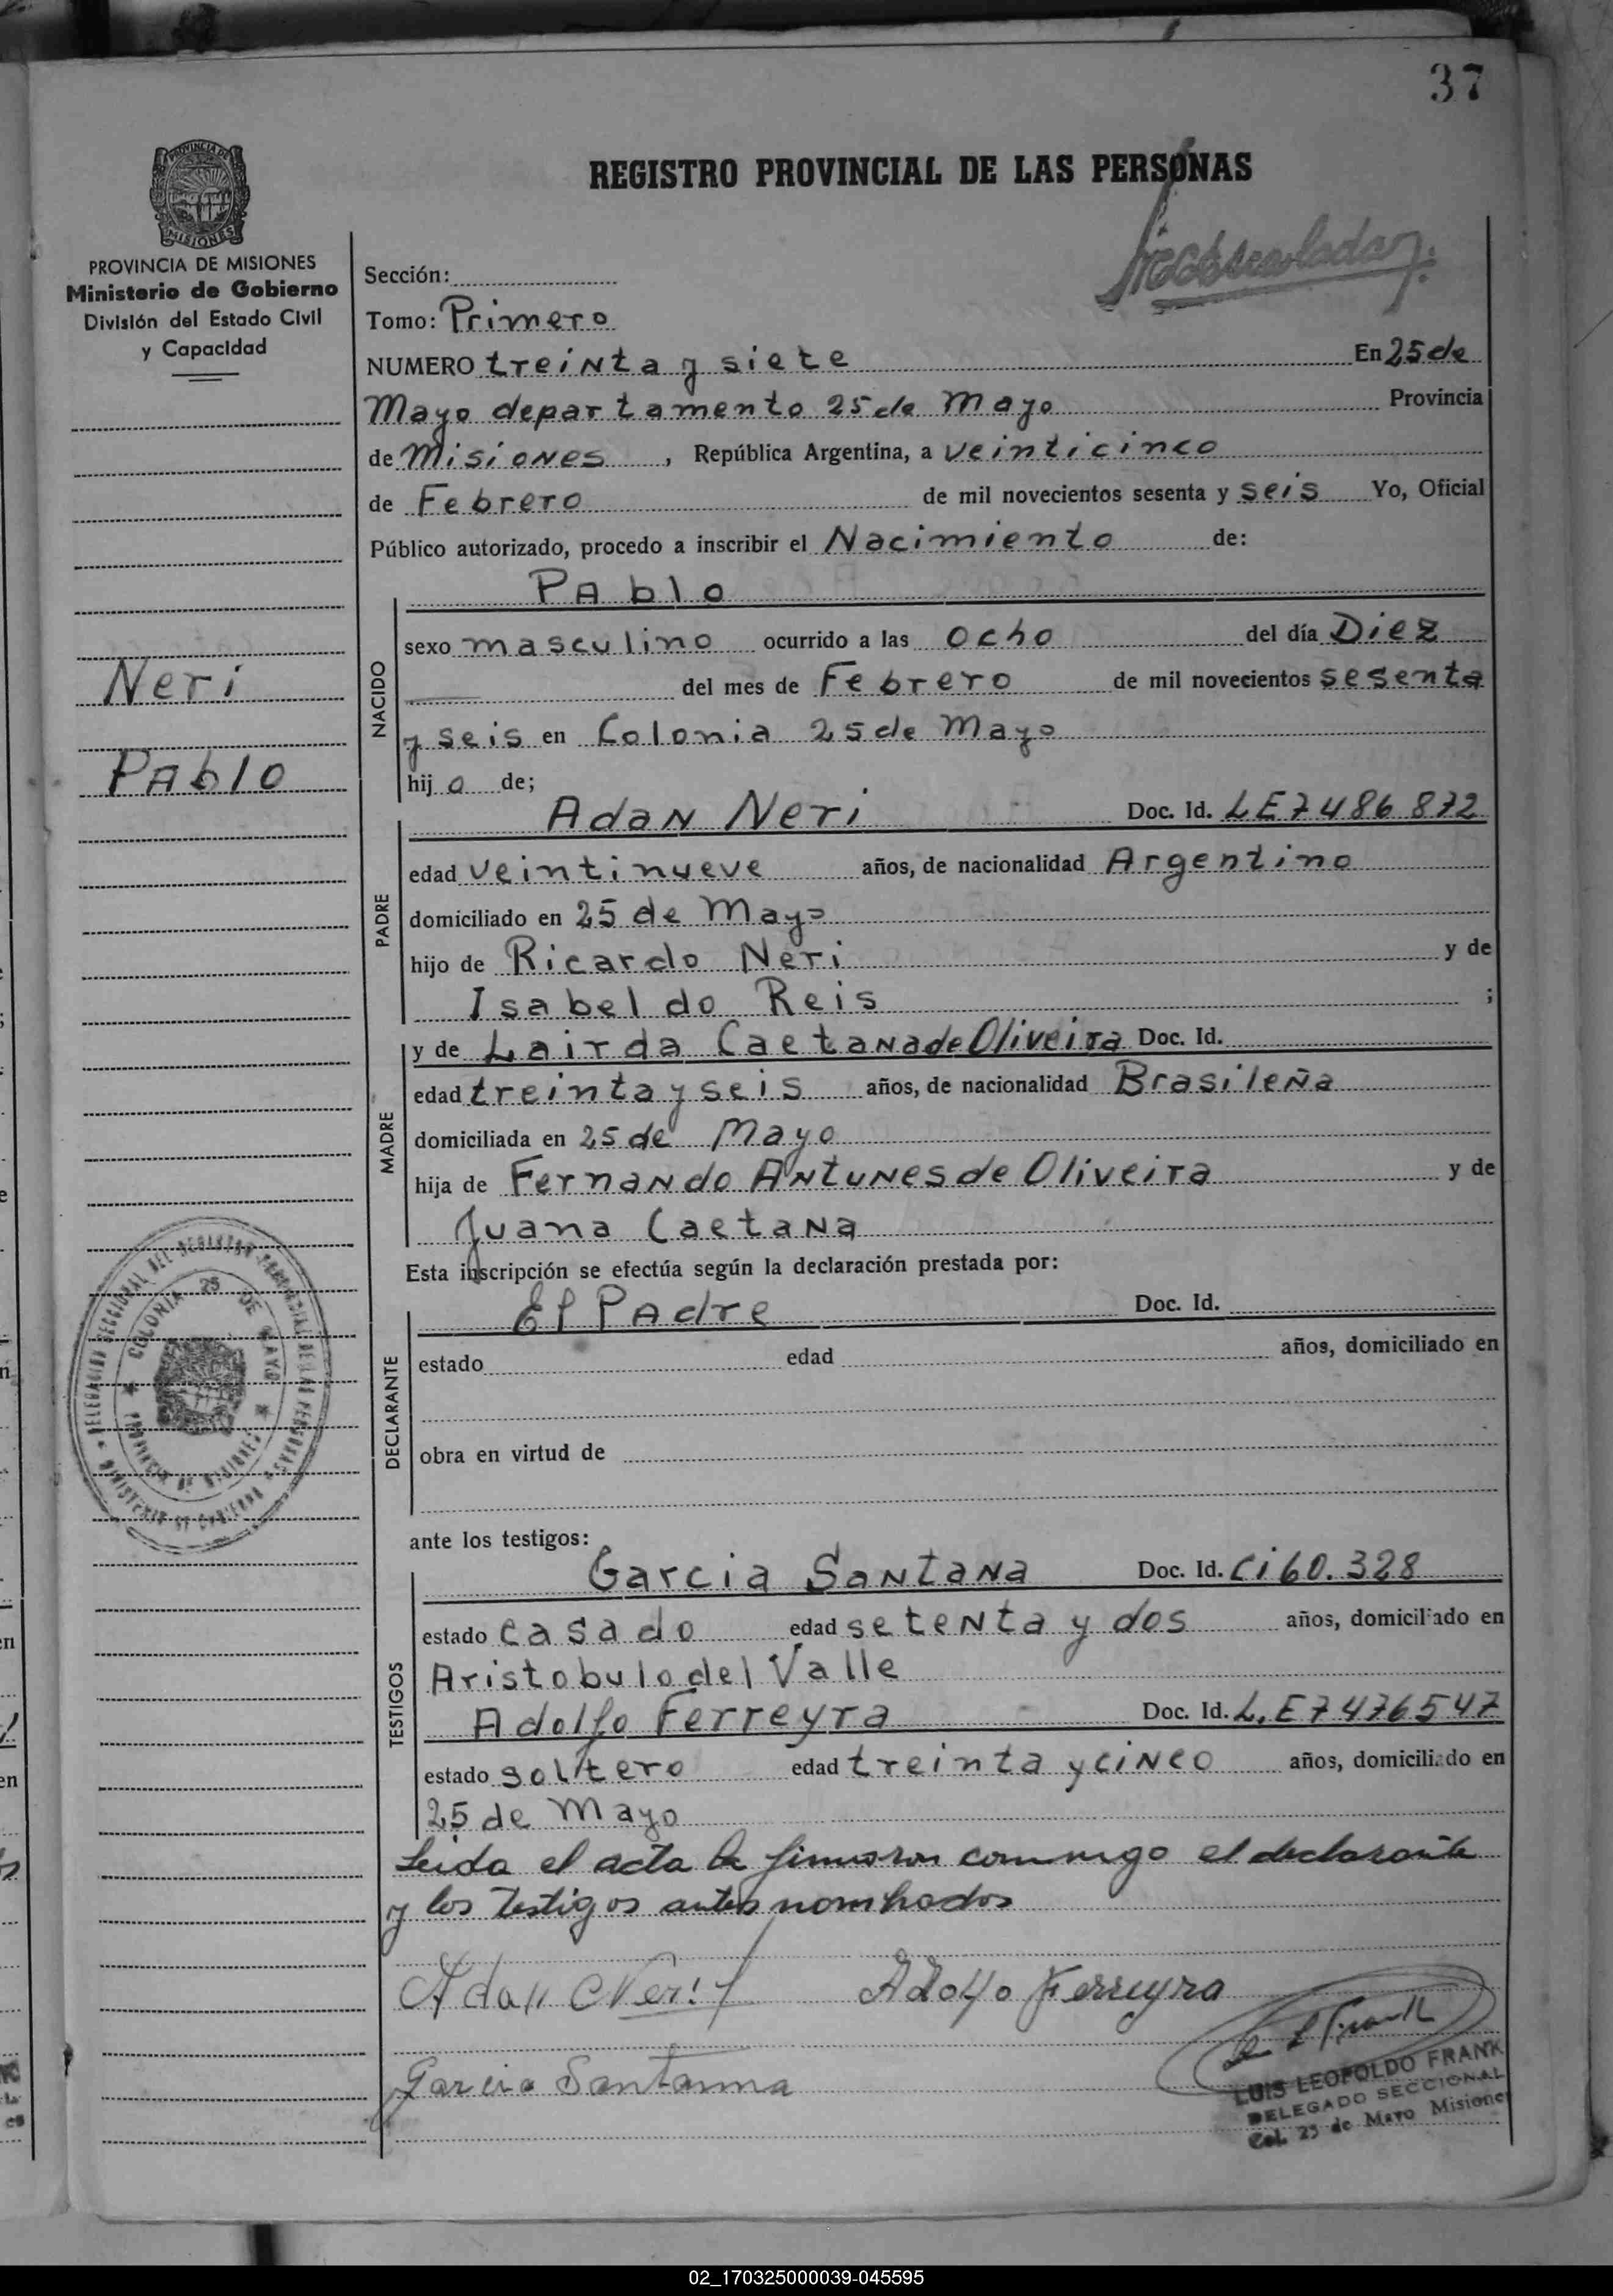 37
REGISTRO PROVINCIAL DE LAS PERSONAS
PROVINCIA DE
MISIONES
PROVINCIA DE MISIONES
Ministerio de Gobierno
División del Estado Civil
y Capacidad
Neri
Pablo
Sección:
Tomo: Primero
NUMERO treinta y siete En 25 de
Mayo departamento 25 de Mayo Provincia
de Misiones, República Argentina, a veinticinco
de Febrero de mil novecientos sesenta y seis Yo, Oficial
Público autorizado, procedo a inscribir el Nacimiento de:
Pablo
NACIDO
sexo masculino ocurrido a las ocho del día Diez
del mes de Febrero de mil novecientos sesenta
y seis en Colonia 25 de Mayo
hijo de;
PADRE
Adan Neri Doc. Id. LE 7486872
edad veintinueve años, de nacionalidad Argentino
domiciliado en 25 de Mayo
hijo de Ricardo Neri y de
Isabel do Reis ;
MADRE
y de Lairda Caetana de Oliveira Doc. Id.
edad treinta y seis años, de nacionalidad Brasileña
domiciliada en 25 de Mayo
hija de Fernando Antunes de Oliveira y de
Juana Caetana
Esta inscripción se efectúa según la declaración prestada por:
DECLARANTE
El Padre Doc. Id.
estado edad años, domiciliado en
obra en virtud de
DELEGACION SECCIONAL DEL REGISTRO PROVINCIAL DE LAS PERSONAS
MINISTERIO DE GOBIERNO
COLONIA 25 DE MAYO
PROVINCIA DE MISIONES
ante los testigos:
TESTIGOS
Garcia Santana Doc. Id. Ci 60.328
estado casado edad setenta y dos años, domiciliado en
Aristobulo del Valle
Adolfo Ferreyra Doc. Id. L.E 7476547
estado soltero edad treinta y cinco años, domiciliado en
25 de Mayo
Leida el acta la firmaron conmigo el declarante
y los testigos antes nombrados
Adan Neri Adolfo Ferreyra
Garcia Santanna
LUIS LEOPOLDO FRANK
DELEGADO SECCIONAL
Col. 25 de Mayo Misiones
02_170325000039-045595